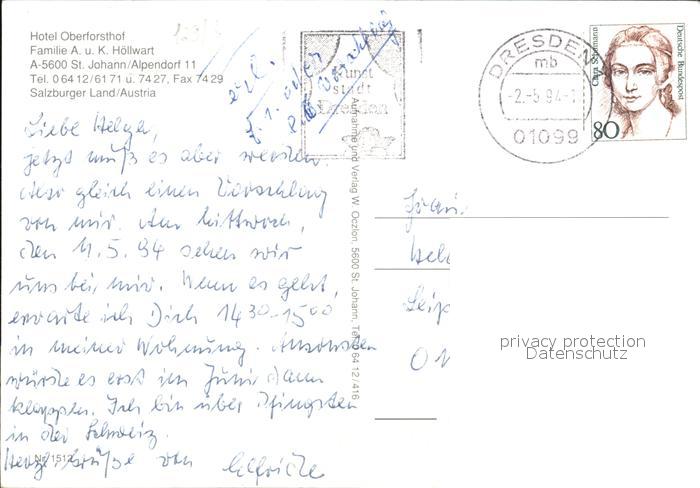 Hotel Oberforsthof
Familie A. u. K. Höllwart
A-5600 St. Johann/Alpendorf 11
Tel. 0 64 12/61 71 u. 74 27, Fax 74 29
Salzburger Land/Austria
Liebe Helga,
jetzt muß es aber werden.
also gleich einen Vorschlag
von mir. Am Mittwoch,
den 11.5.94 sehen wir
uns bei mir. Wenn es geht,
erwarte ich Dich 14 30 - 15 00
in meiner Wohnung. Ansonsten
würde es erst im Juni dann
klappen. Ich bin über Pfingsten
in der Schweiz.
Herzl. Grüße von Elfriede
Nr. 1512
Aufnahme und Verlag W. Oczlon, 5600 St. Johann, Tel. 0 64 12 / 416
Kunst
stadt
Dresden
DRESDEN
mb
-2.-5.94-
01099
Clara Schumann
Deutsche Bundespost
80
Frau
Hel
Leip
O
privacy protection
Datenschutz